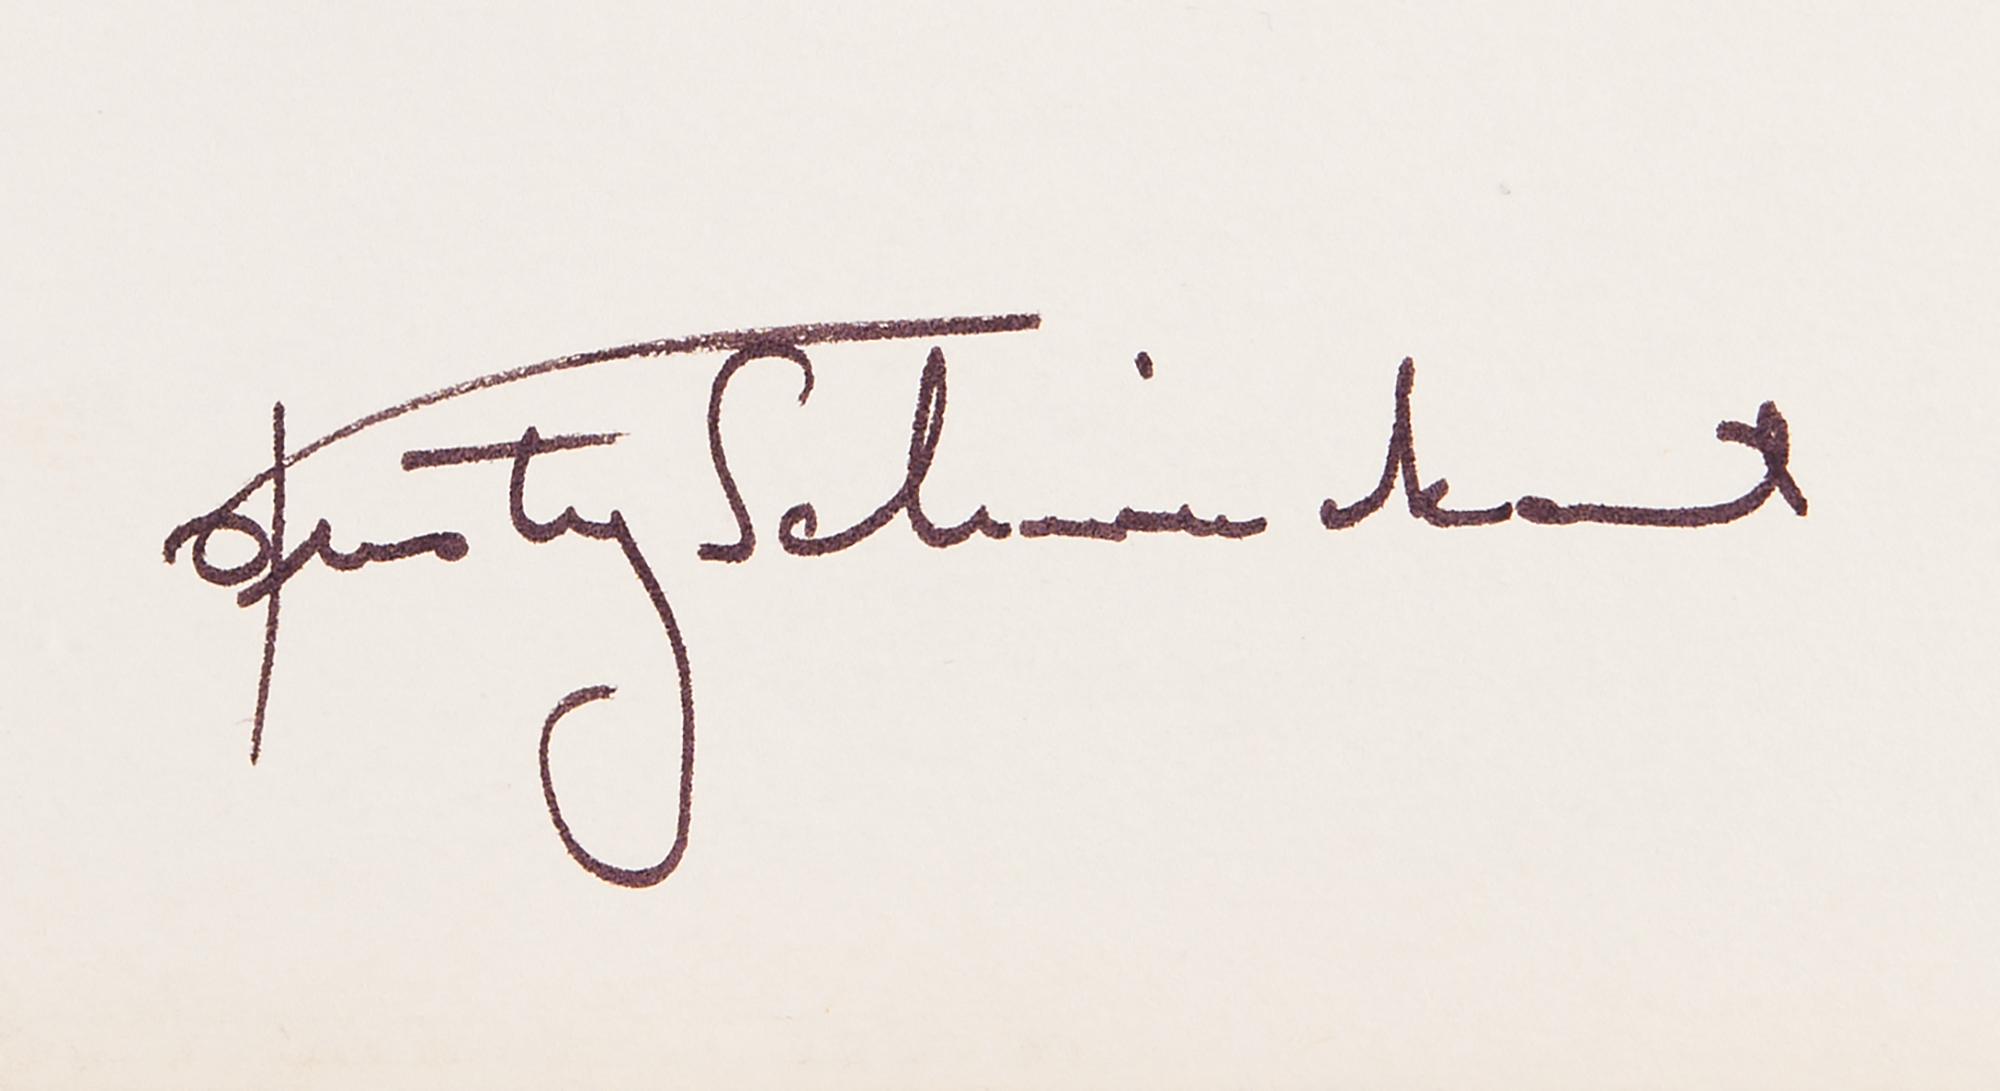 Rusty Schweickart